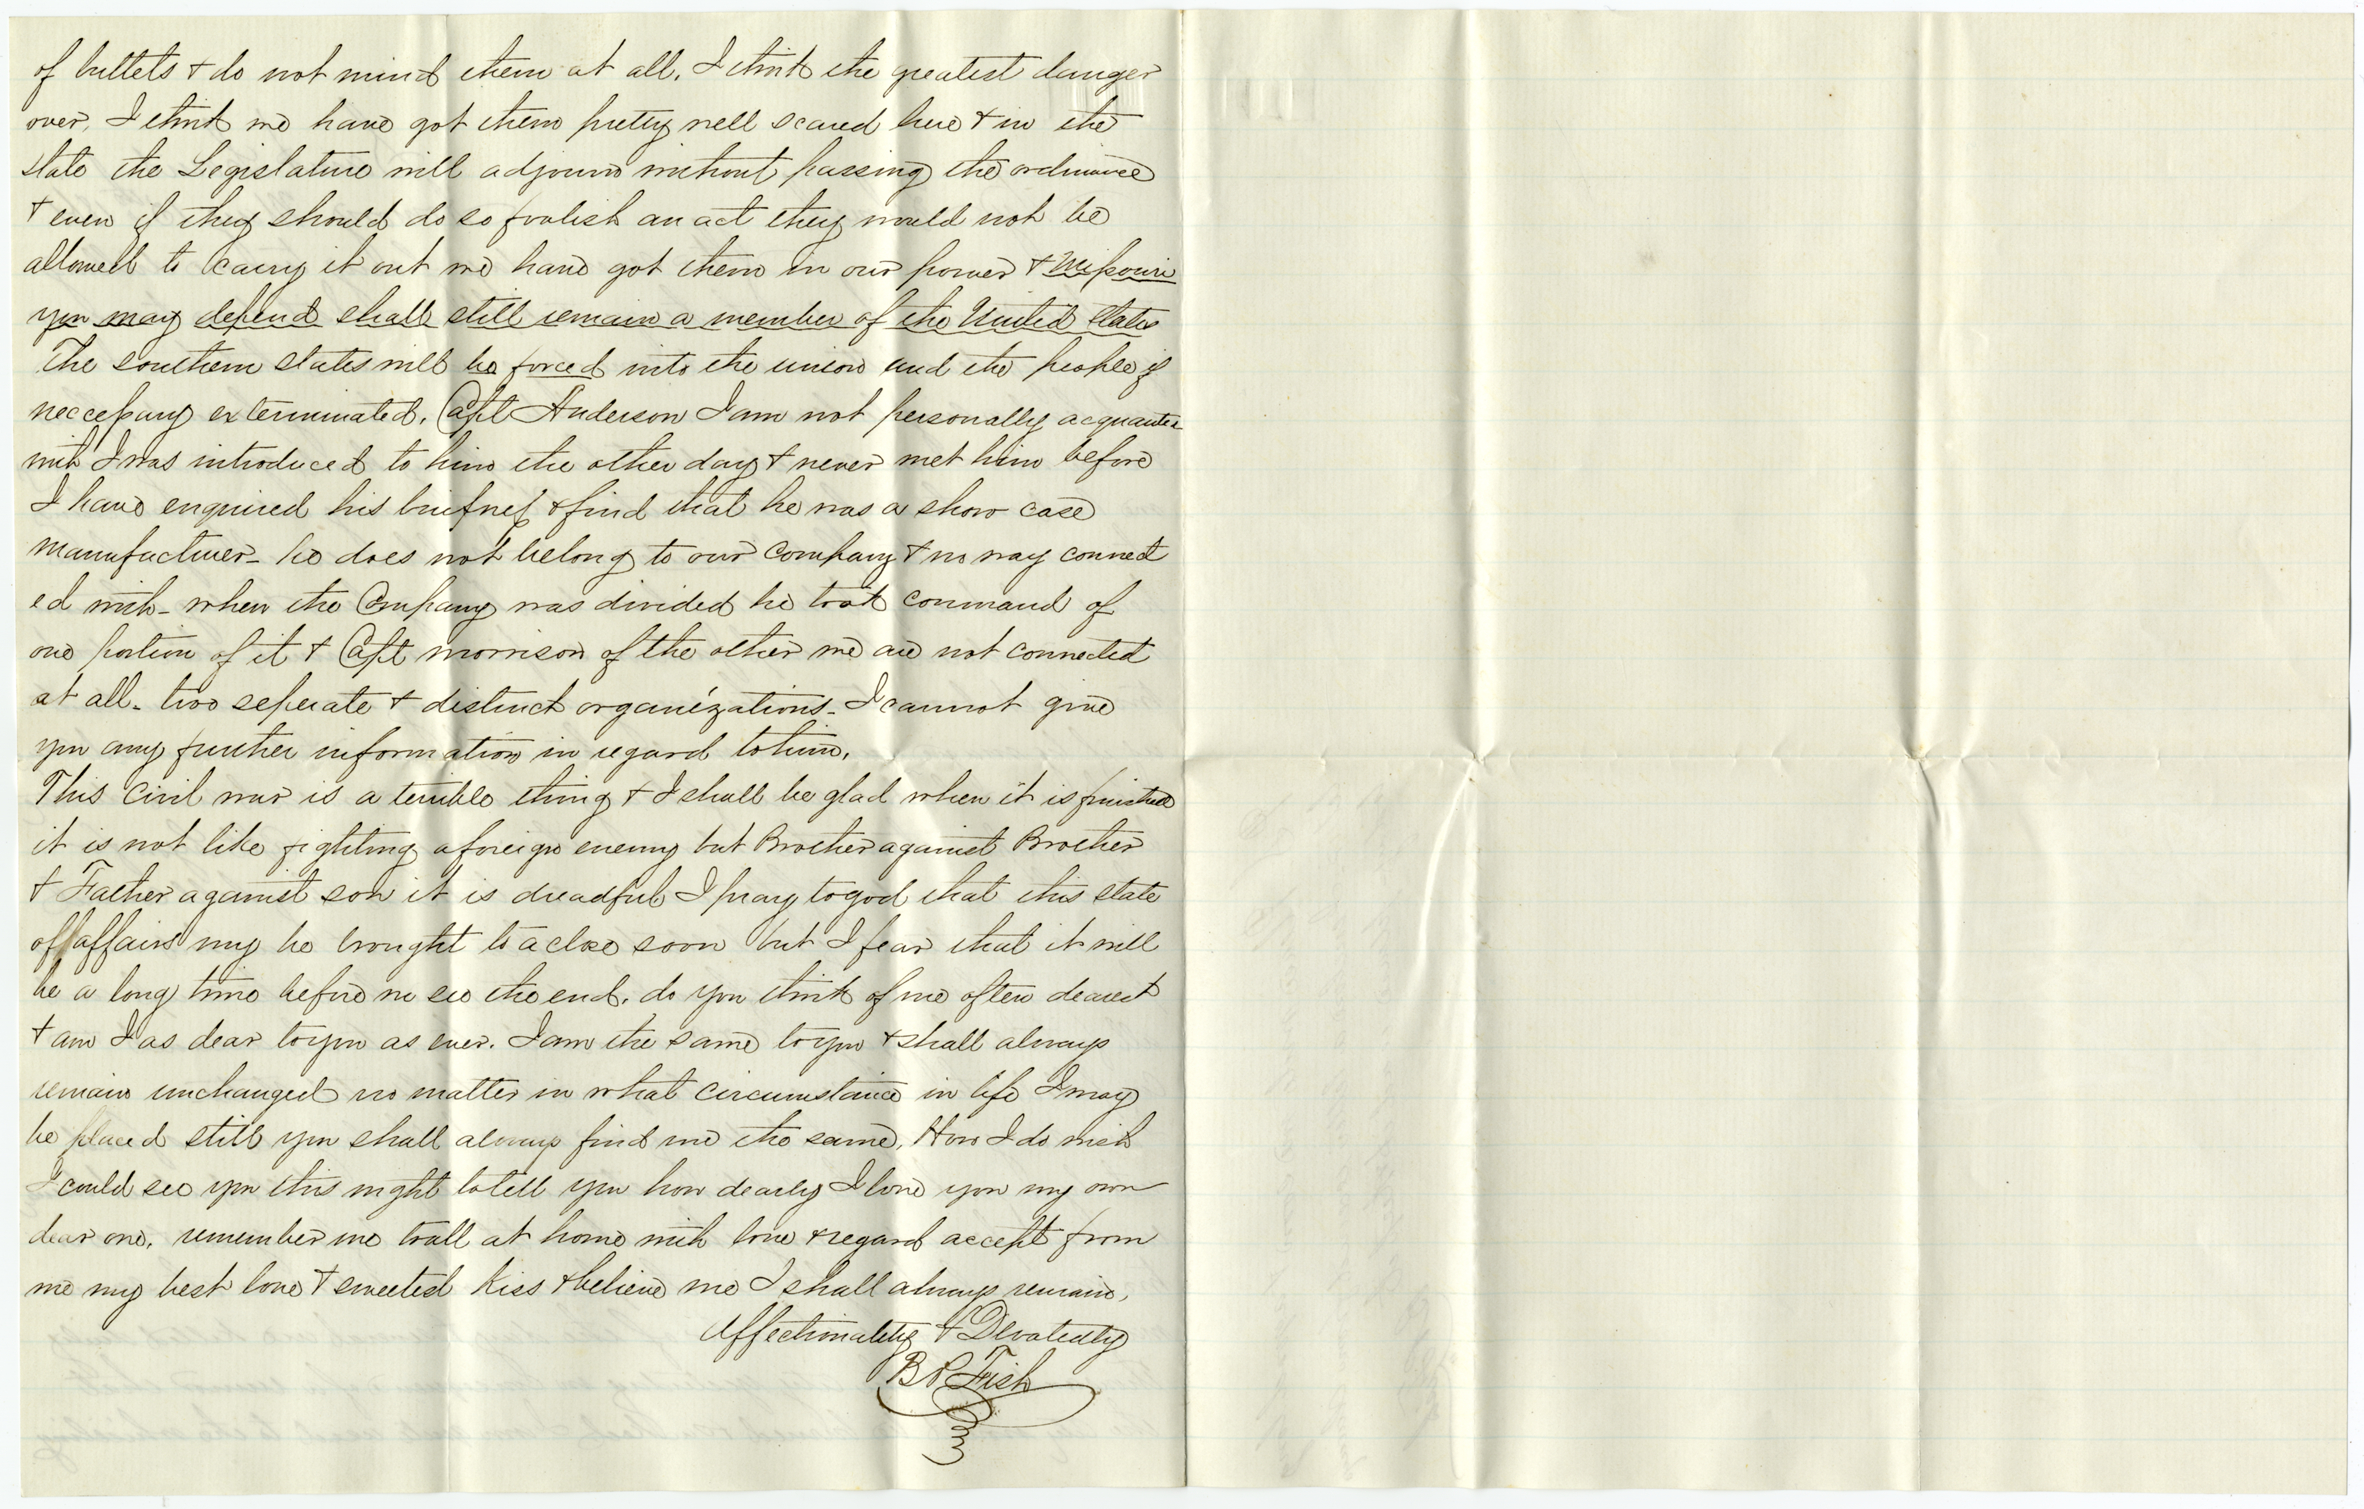 of bullets & do not mind them at all. I think the greatest danger
over. I think we have got them pretty well scared here & in the
state the Legislature will adjourn without passing the ordinance
& even if they should do so foolish an act they would not be
allowed to carry it out we have got them in our power & Missouri
you may depend shall still remain a member of the United States
The southern states will be forced into the union and the people if
neccessary exterminated. Capt Anderson I am not personally acquainted
with I was introduced to him the other day & never met him before
I have enquired his buisness & find that he was a show case
manufacturer - he does not belong to our company & no way connect
ed with - when the Company was divided he took command of
one portion of it & Capt morrison of the other we are not connected
at all - two seperate & distinct organizations - I cannot give
you any further information in regard to him.
This civil war is a terrible thing & I shall be glad when it is finished
it is not like fighting a foreign enemy but Brother against Brother
& Father against son it is dreadful I pray to god that this state
of affairs my be brought to a close soon but I fear that it will
be a long time before we see the end. do you think of me often dearest
& am I as dear to you as ever. I am the same to you & shall always
remain unchanged no matter in what circumstance in life I may
be placed still you shall always find me the same. How I do wish
I could see you this night to tell you how dearly I love you my own
dear one. remember me to all at home with love & regard accept from
me my best love & sweetest kiss & believe me I shall always remain,
Affectionately & Devotedly
B P Fish